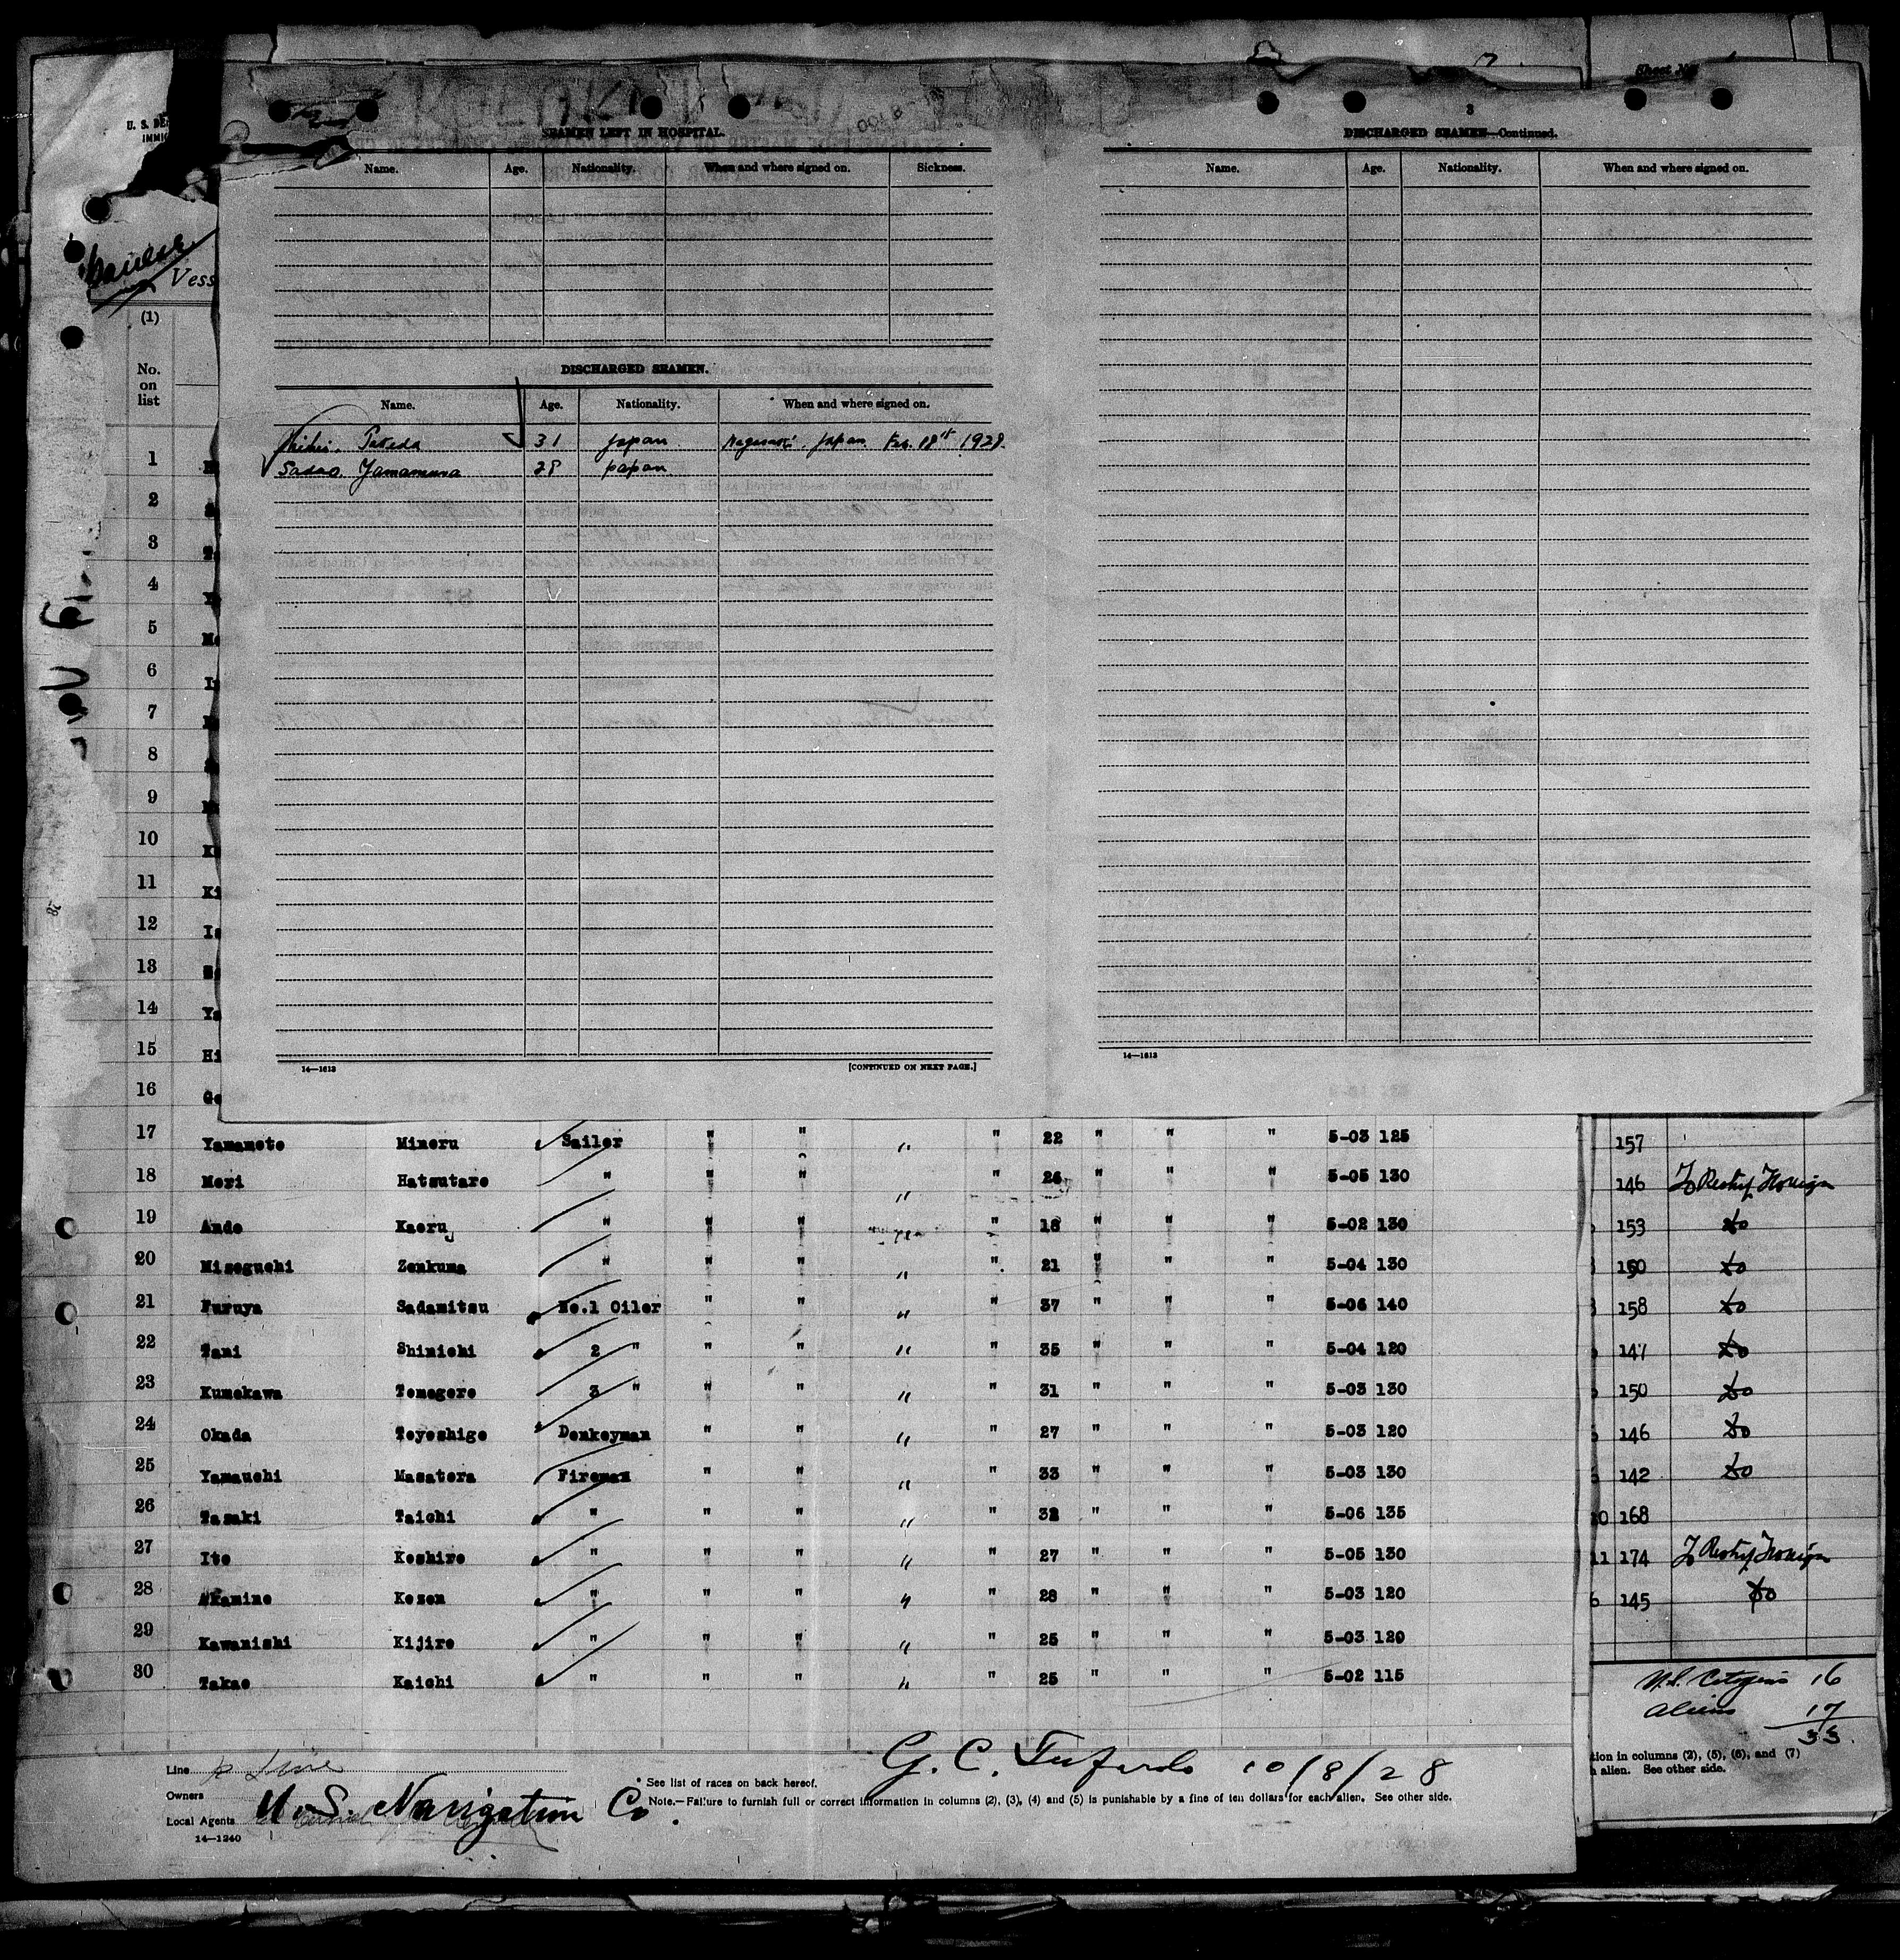 SEAMEN LEFT IN HOSPITAL.
Name. Age. Nationality. When and where signed on. Sickness.
DISCHARGED SEAMEN.
Name. Age. Nationality. When and where signed on.
Takeda 31 Japan Japan. Feb. 18th 1928.
Sadao Yamamura 28 Japan
14—1613
[CONTINUED ON NEXT PAGE.]
3
DISCHARGED SEAMEN—Continued.
Name. Age. Nationality. When and where signed on.
14—1613
Sheet No.
U. S. DE
IMMIG
Vess
(1)
No.
on
list
1
2
3
4
5
6
7
8
9
10
11 Ki
12
13
14 Ya
15 Hi
16 Ge
17 Yamamoto Minoru Sailor " " " " 22 " " " 5-03 125
18 Mori Hatsutaro " " " " " 26 " " " 5-05 130
19 Ando Kaoru " " " " 18 " " " 5-02 130
20 Mizoguchi Zenkuma " " " " " 21 " " " 5-04 130
21 Furuya Sadamitsu No.1 Oiler " " " " 37 " " " 5-06 140
22 Tani Shinichi 2 " " " " " 35 " " " 5-04 120
23 Kumekawa Tomogoro 3 " " " " " 31 " " " 5-03 130
24 Okada Toyoshige Donkeyman " " " " 27 " " " 5-03 120
25 Yamauchi Masatora Fireman " " " " 33 " " " 5-03 130
26 Tasaki Taichi " " " " " 32 " " " 5-06 135
27 Ito Koshiro " " " " " 27 " " " 5-05 130
28 Akamine Kozen " " " " " 28 " " " 5-03 120
29 Kawanishi Kijiro " " " " " 25 " " " 5-03 120
30 Takao Kaichi " " " " " 25 " " " 5-02 115
157
146 To Reship Foreign
153 do
150 do
158 do
147 do
150 do
146 do
142 do
168
11 174 To Reship Foreign
145 do
U.S. Citizens 16
Aliens 17
33.
tion in columns (2), (5), (6), and (7)
h alien. See other side.
Line K Line
Owners
Local Agents U.S. Navigation Co.
14—1240
G. C. 10/8/28
* See list of races on back hereof.
Note.—Failure to furnish full or correct information in columns (2), (3), (4) and (5) is punishable by a fine of ten dollars for each alien. See other side.